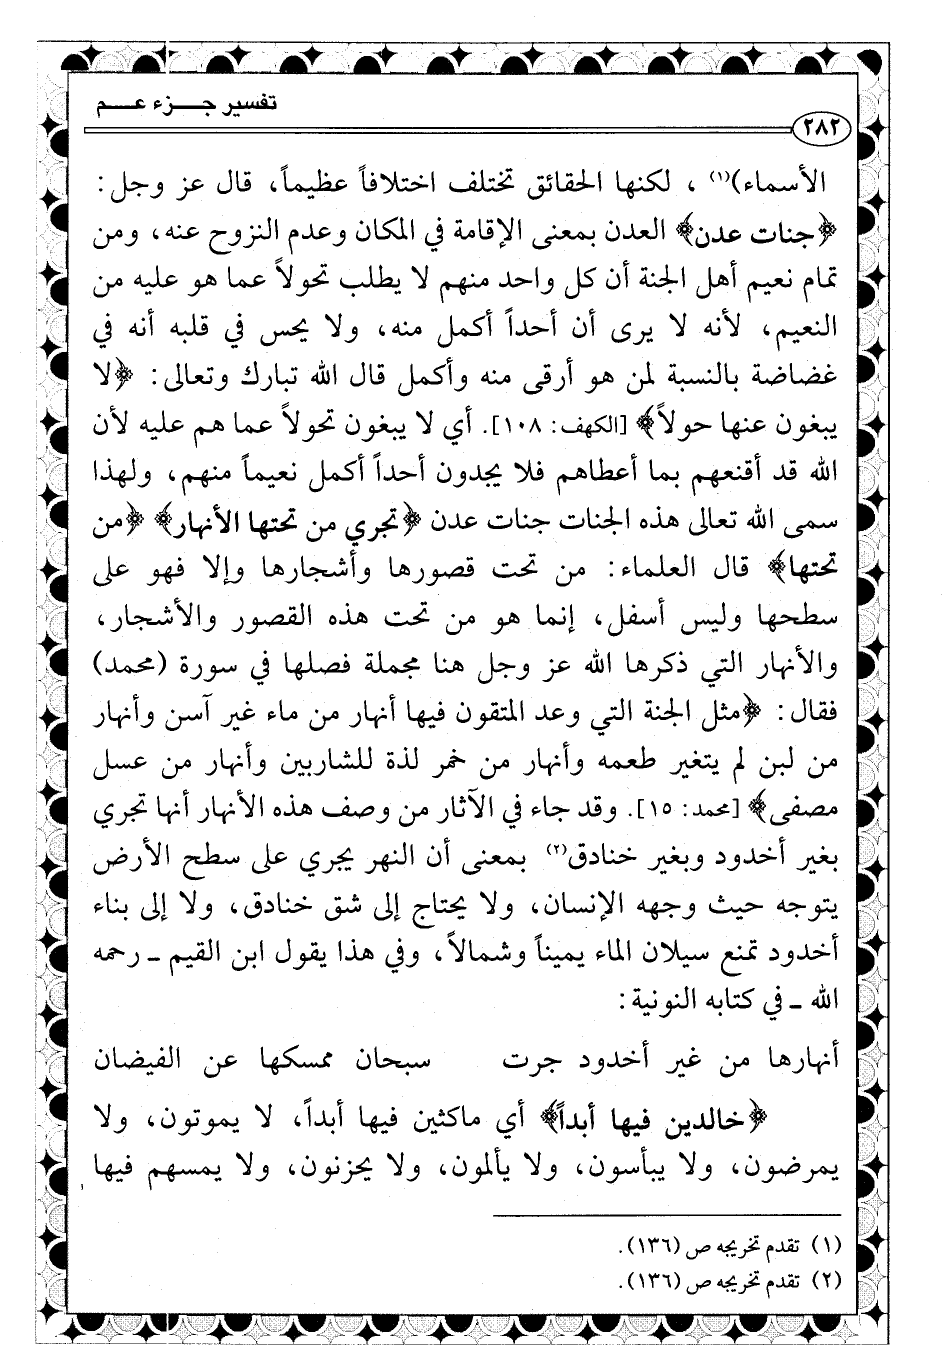 تفسير جـــزء عـــم
٢٨٢
الأسماء)(١) ، لكنها الحقائق تختلف اختلافاً عظيماً، قال عز وجل:
﴿جنات عدن﴾ العدن بمعنى الإقامة في المكان وعدم النزوح عنه، ومن
تمام نعيم أهل الجنة أن كل واحد منهم لا يطلب تحولاً عما هو عليه من
النعيم، لأنه لا يرى أن أحداً أكمل منه، ولا يحس في قلبه أنه في
غضاضة بالنسبة لمن هو أرقى منه وأكمل قال الله تبارك وتعالى: ﴿لا
يبغون عنها حولاً﴾ [الكهف: ١٠٨]. أي لا يبغون تحولاً عما هم عليه لأن
الله قد أقنعهم بما أعطاهم فلا يجدون أحداً أكمل نعيماً منهم، ولهذا
سمى الله تعالى هذه الجنات جنات عدن ﴿تجري من تحتها الأنهار﴾ ﴿من
تحتها﴾ قال العلماء: من تحت قصورها وأشجارها وإلا فهو على
سطحها وليس أسفل، إنما هو من تحت هذه القصور والأشجار،
والأنهار التي ذكرها الله عز وجل هنا مجملة فصلها في سورة (محمد)
فقال: ﴿مثل الجنة التي وعد المتقون فيها أنهار من ماء غير آسن وأنهار
من لبن لم يتغير طعمه وأنهار من خمر لذة للشاربين وأنهار من عسل
مصفى﴾ [محمد: ١٥]. وقد جاء في الآثار من وصف هذه الأنهار أنها تجري
بغير أخدود وبغير خنادق(٢) بمعنى أن النهر يجري على سطح الأرض
يتوجه حيث وجهه الإنسان، ولا يحتاج إلى شق خنادق، ولا إلى بناء
أخدود تمنع سيلان الماء يميناً وشمالاً، وفي هذا يقول ابن القيم ـ رحمه
الله ـ في كتابه النونية:
أنهارها من غير أخدود جرت سبحان ممسكها عن الفيضان
﴿خالدين فيها أبداً﴾ أي ماكثين فيها أبداً، لا يموتون، ولا
يمرضون، ولا يبأسون، ولا يألمون، ولا يحزنون، ولا يمسهم فيها
(١) تقدم تخريجه ص (١٣٦).
(٢) تقدم تخريجه ص (١٣٦).